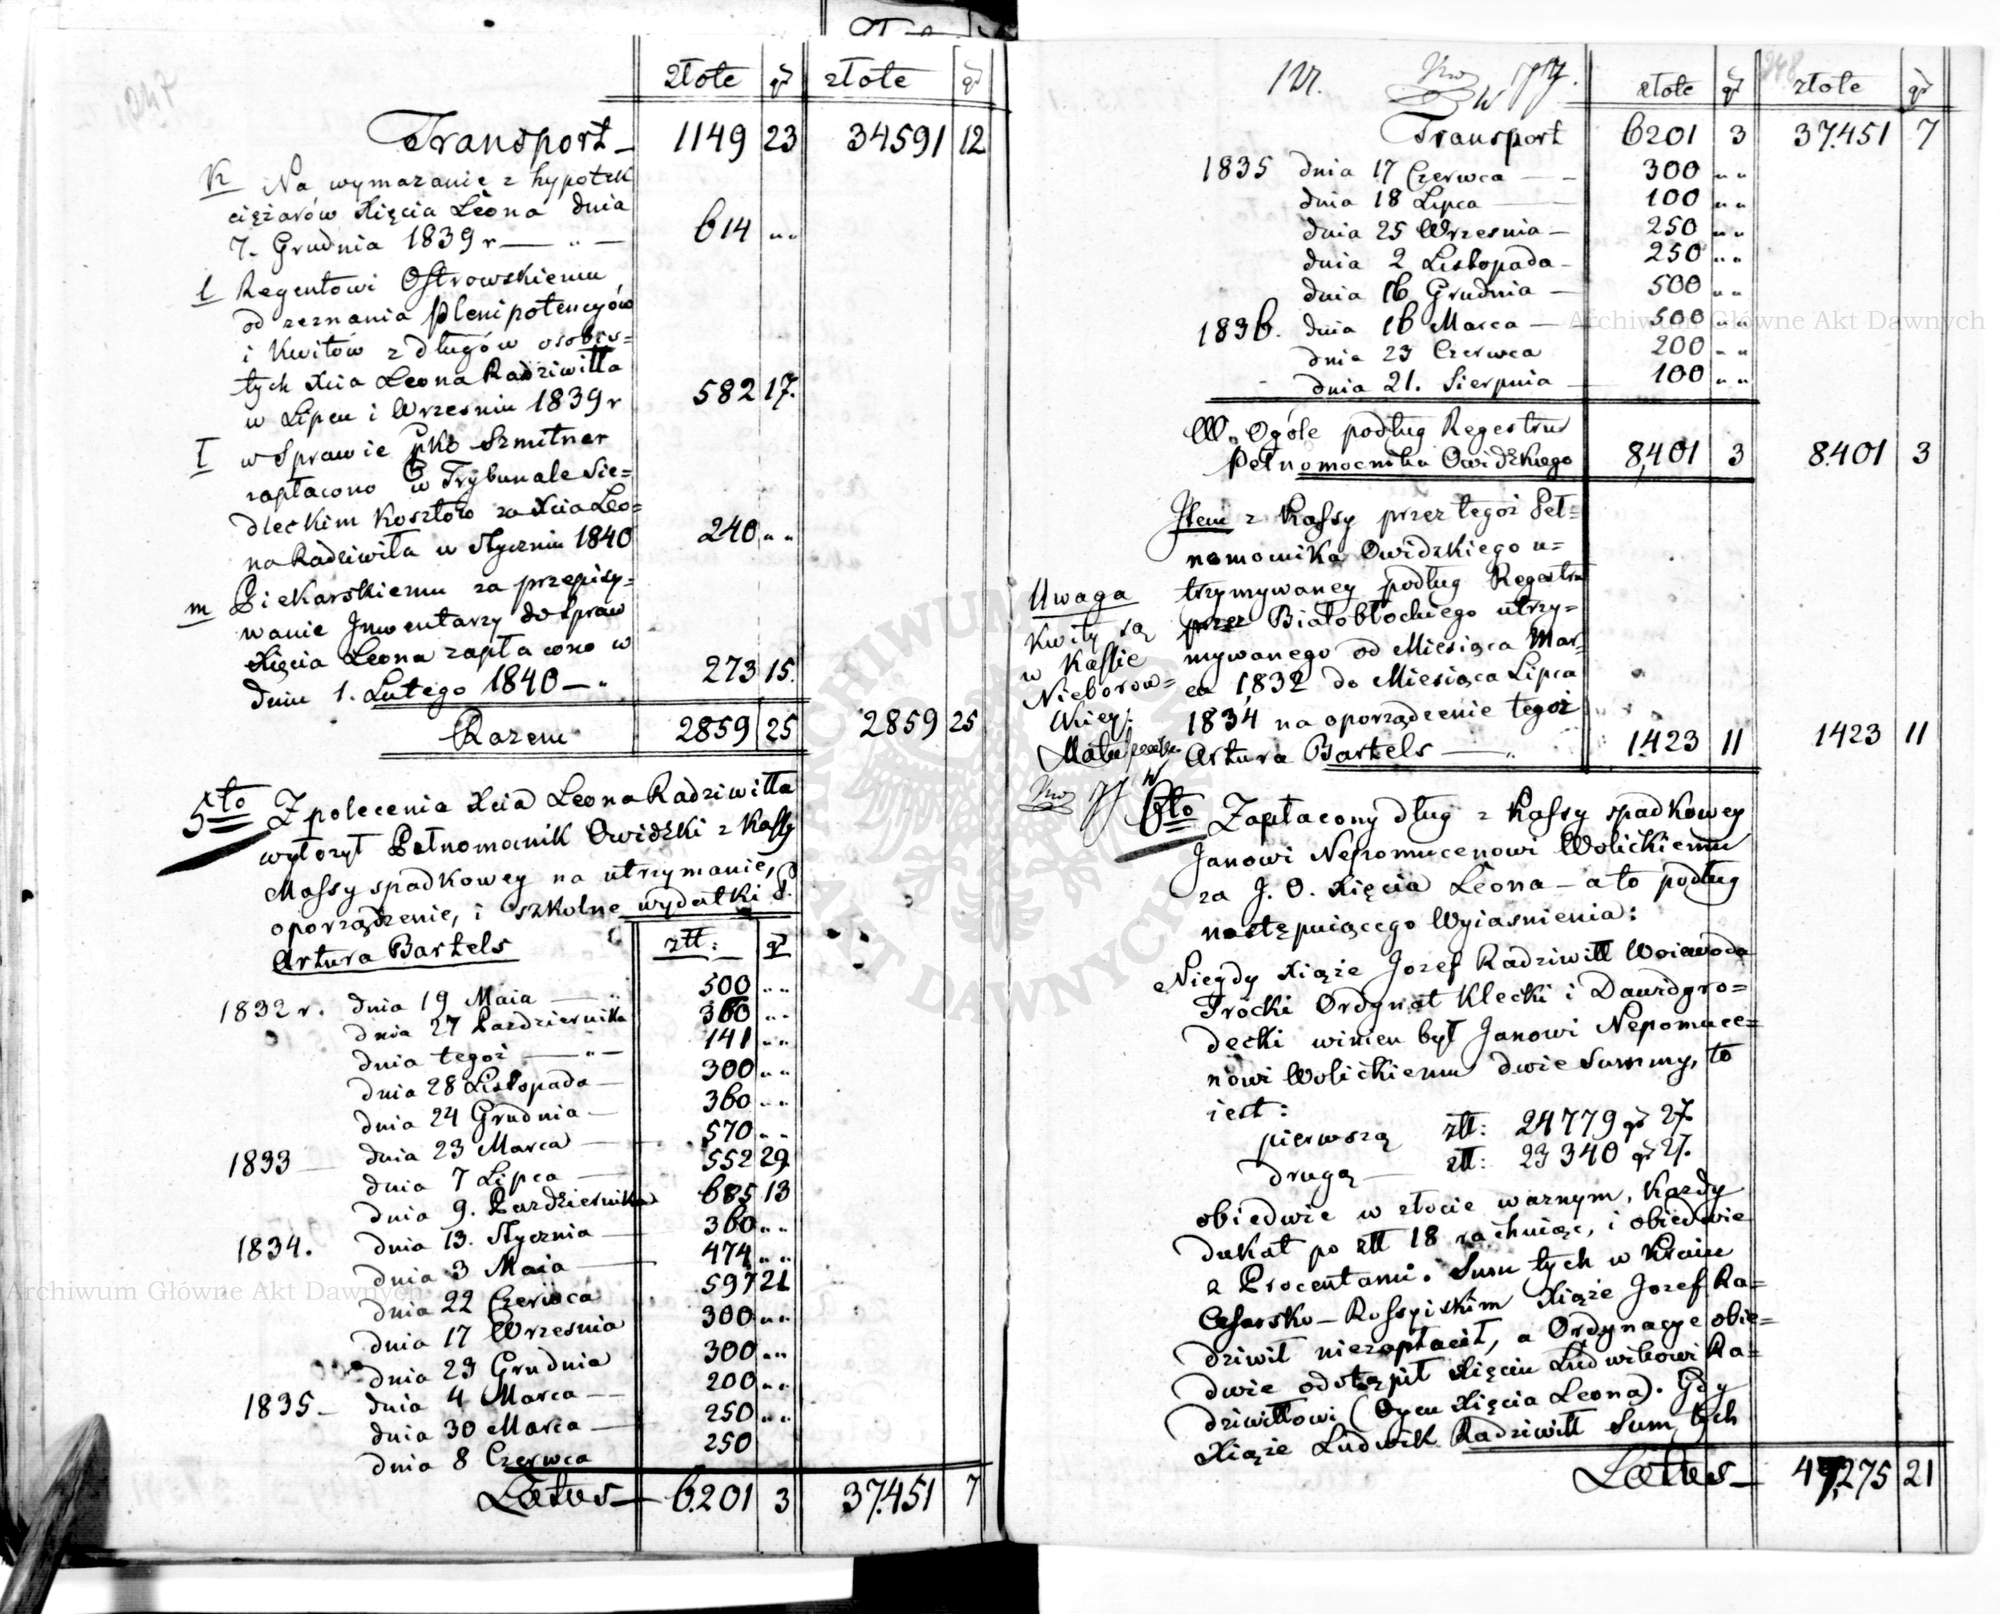 złote gr złote gr
Transport — 1149 23 34591 12
k Na wymazanie z hypotek
ciężarów Xięcia Leona dnia
7. Grudnia 1839 r — „ — 614 „ „
l Regentowi Ostrowskiemu
od zeznania Plenipotencyów
i Kwitów z długów osobis=
tych Xcia Leona Radziwiłła
w Lipcu i Wrzesniu 1839 r 582 17.
ł w Sprawie pko Szmitner
zapłacono w Trybunale Sie=
dleckim Kosztów za Xcia Leo=
na Radziwiła w Styczniu 1840 240 „ „
m Piekarskiemu za przepisy=
wanie Inwentarzy do Spraw
Xięcia Leona zapłacono w
dniu 1. Lutego 1840 — „ 273 15.
Razem 2859 25 2859 25
5to Z polecenia Xcia Leona Radziwiłła
wyłożył Pełnomocnik Owidzki z Kassy
Massy spadkowey na utrzymanie,
oporządzenie, i szkolne wydatki P.
Artura Bartels złł: gr
1832 r. dnia 19 Maia — „ 500 „ „
dnia 27 Pazdziernika 360 „ „
dnia tegoż — „ — 141 „ „
dnia 28 Listopada — 300 „ „
dnia 24 Grudnia — 360 „ „
1833 — dnia 23 Marca — 570 „ „
dnia 7 Lipca — 552 29
dnia 9. Pazdziernika 685 13
1834. dnia 13. Stycznia — 360 „ „
dnia 3 Maia — 474 „ „
dnia 22 Czerwca 597 21
dnia 17 Wrzesnia 300 „ „
dnia 23 Grudnia 300 „ „
1835 — dnia 4 Marca — 200 „ „
dnia 30 Marca — 250 „ „
dnia 8 Czerwca 250
Latus — 6.201 3 37.451 7
złote gr złote gr
Transport 6201 3 37.451 7
1835 dnia 17 Czerwca — 300 „ „
dnia 18 Lipca — 100 „ „
dnia 25 Wrzesnia — 250 „ „
dnia 2 Listopada — 250 „ „
dnia 16 Grudnia — 500 „ „
1836. dnia 16 Marca — 500 „ „
dnia 23 Czerwca 200 „ „
dnia 21. Sierpnia — 100 „ „
W. Ogóle podług Regestru
Pełnomocnika Owidzkiego 8,401 3 8.401 3
Item z Kassy przez tegoż Peł=
nomocnika Owidzkiego u=
trzymywaney podług Regestru
przez Białobłockiego utrzy=
mywanego od Miesiąca Mar=
ca 1832 do Miesiąca Lipca
1834 na oporządzenie tegoż
Artura Bartels — „ 1.423 11 1423 11
Uwaga
Kwity są
w Kassie
Nieborow=
skiey:
6to Zapłacony dług z Kassy spadkowey
Janowi Nepomucenowi Wolickiemu
za J. O. Xięcia Leona — a to podług
następuiącego Wyiasnienia:
Niegdy Xiąże Jozef Radziwiłł Woiewoda
Trocki Ordynat Klecki i Dawidgro=
decki winien był Janowi Nepomuce=
nowi Wolickiemu dwie Summy, to
iest:
pierwszą złł: 24779 gr 27.
drugą — złł: 23340 gr 27.
obiedwie w złocie waznym, każdy
dukat po złł 18 rachuiąc, i obiedwie
z Procentami. Sum tych w Kraiu
Cesarsko — Rossyiskim Xiąże Jozef Ra=
dziwił niezapłacił, a Ordynacye obie=
dwie odstąpił Xięciu Ludwikowi Ra=
dziwiłłowi (Oycu Xięcia Leona). Gdy
Xiąże Ludwik Radziwiłł Sum tych
Latus — 47,275 21
Archiwum Główne Akt Dawnych
Archiwum Główne Akt Dawnych
ARCHIWUM GŁÓWNE AKT DAWNYCH